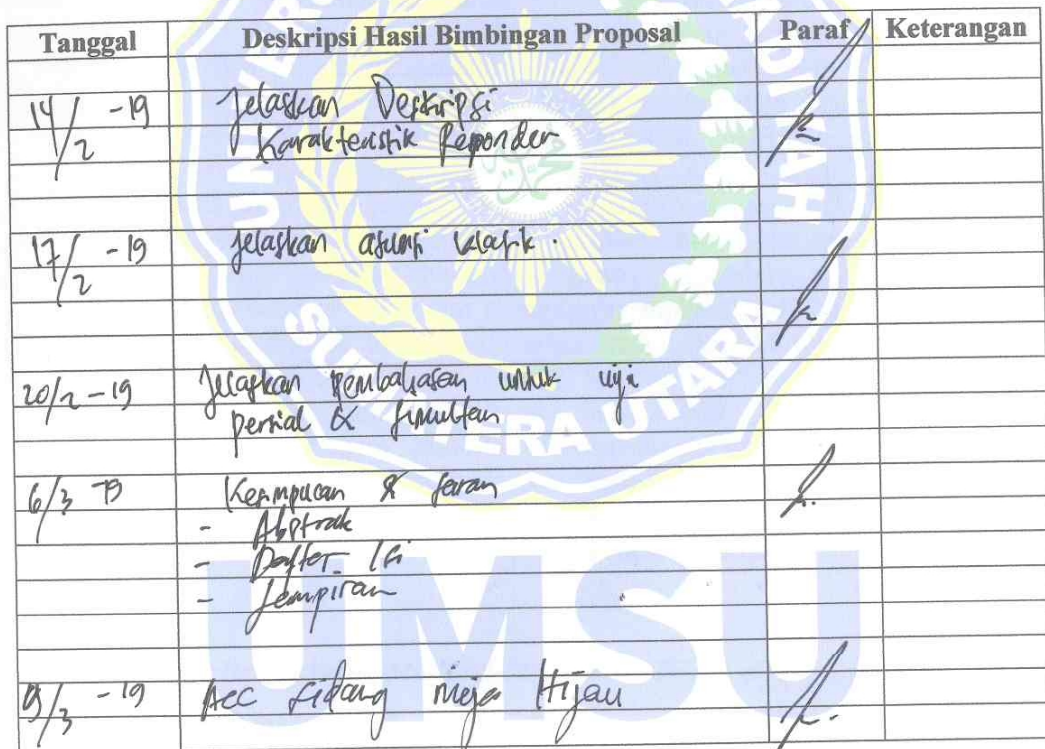 Tanggal Deskripsi Hasil Bimbingan Proposal Paraf Keterangan
14/2 -19 Jelaskan Deskripsi
Karakteristik Responder
17/2 -19 Jelaskan asumsi klasik.
20/2 -19 Jelaskan pembahasan untuk uji
persial & simultan
6/3 19 Kesimpulan & saran
- Abstrak
- Daftar Isi
- Lampiran
9/3 -19 Acc Sidang meja Hijau
SUMATERA UTARA
UMSU